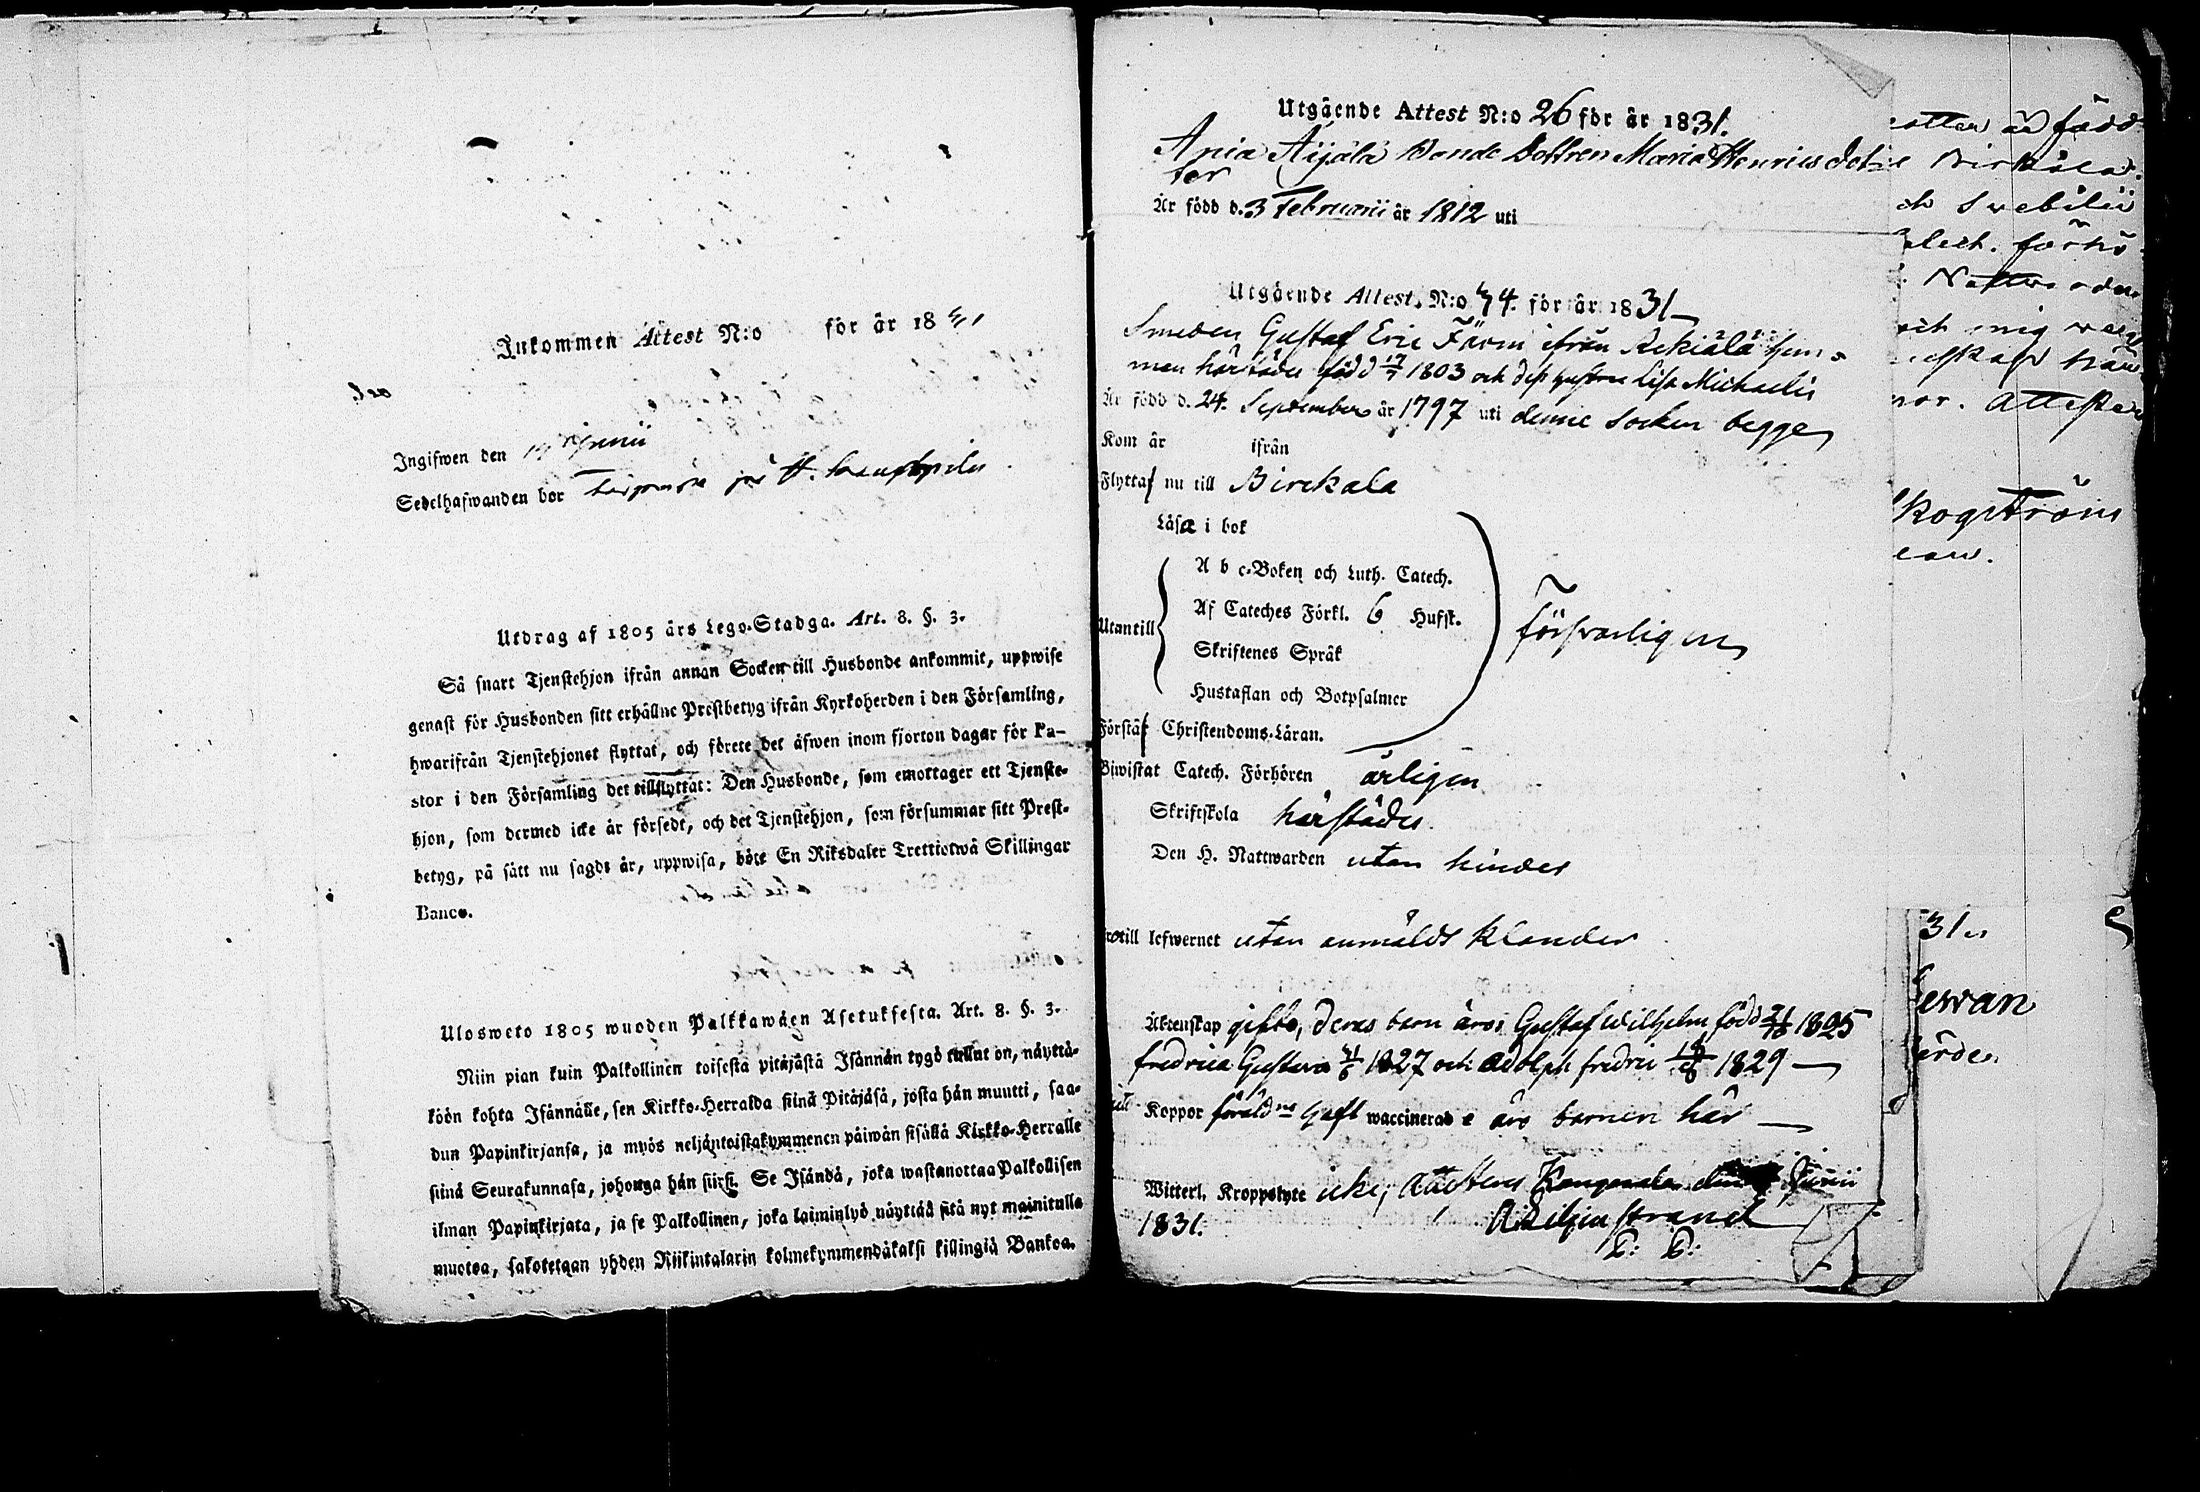 Inkommen Attest N:o för år 18
Ingifwen den Junii
Sedelhafwanden bor
Utdrag af 1805 års Lego-Stadga. Art. 8. §. 3.
Så snart Tjenstehjon ifrån annan Socken till Husbonde ankommit, uppwise
genast för Husbonden sitt erhållne Prestbetyg ifrån Kyrkoherden i den Församling,
hwarifrån Tjenstehjonet flyttat, och förete det äfwen inom fjorton dagar för Pa-
stor i den Församling det tillflyttat: Den Husbonde, som emottager ett Tjenste-
hjon, som dermed icke är försedt, och det Tjenstehjon, som försummar sitt Prest-
betyg, på sätt nu sagdt är, uppwisa, böte En Riksdaler Trettiotwå Skillingar
Banco.
Ulosweto 1805 wuoden Palkkawäen Asetuksesta. Art. 8. §. 3.
Niin pian kuin Palkollinen toisesta pitäjästä Isännän tygö tullut on, näyttä-
köön kohta Isännälle, sen Kirkko-Herralda siinä Pitäjäsä, josta hän muutti, saa-
dun Papinkirjansa, ja myös neljäntoistakymmenen päiwän sisällä Kirkko-Herralle
siinä Seurakunnasa, johonga hän siirsi. Se Isändä, joka wastanottaa Palkollisen
ilman Papinkirjata, ja se Palkollinen, joka laiminlyö näyttää sitä nyt mainitulla
muotoa, sakotetaan yhden Riikintalarin kolmekymmendäkaksi killingiä Bankoa.
Utgående Attest N:o 26 för år 1831.
Äijälä Bonde Dottren Maria Henricsdot-
ter
Är född d. 3 Februarii år 1812 uti
Utgående Attest. N:o 74. för år 1831
Smeden Gustaf Eric Färm ifrån Rekiälä hem-
man härstädes född 17/7 1803 och dess hustru Lisa Michaelis
Är född d. 24. September år 1797 uti denne Socken begge
Kom år ifrån
Flytta nu till Birckala
Läsa i bok
A b c-Boken och Luth. Catech.
Af Cateches Förkl. 6 Hufst.
Utantill
försvarligen
Skriftenes Språk
Hustaflan och Botpsalmer
Förstå Christendoms-Läran.
Biwistat Catech. Förhören årligen
Skriftskola härstädes
Den H. Nattwarden utan hinder
till lefwernet utan anmäldt klander
Äktenskap gifte, deras barn äro, Gustaf Wilhelm född 1825
fredrica Gustava 1827 och Adolph fredric 1829
Koppor föräldne haft waccinerade äro barnen här
Witterl. Kroppslyte icke; Attesteras Kangasala den Junii
1831. A Liljestrand
är född
Birkala
Swebilii
förhö
Nattwarden
och mig
Attester
31.